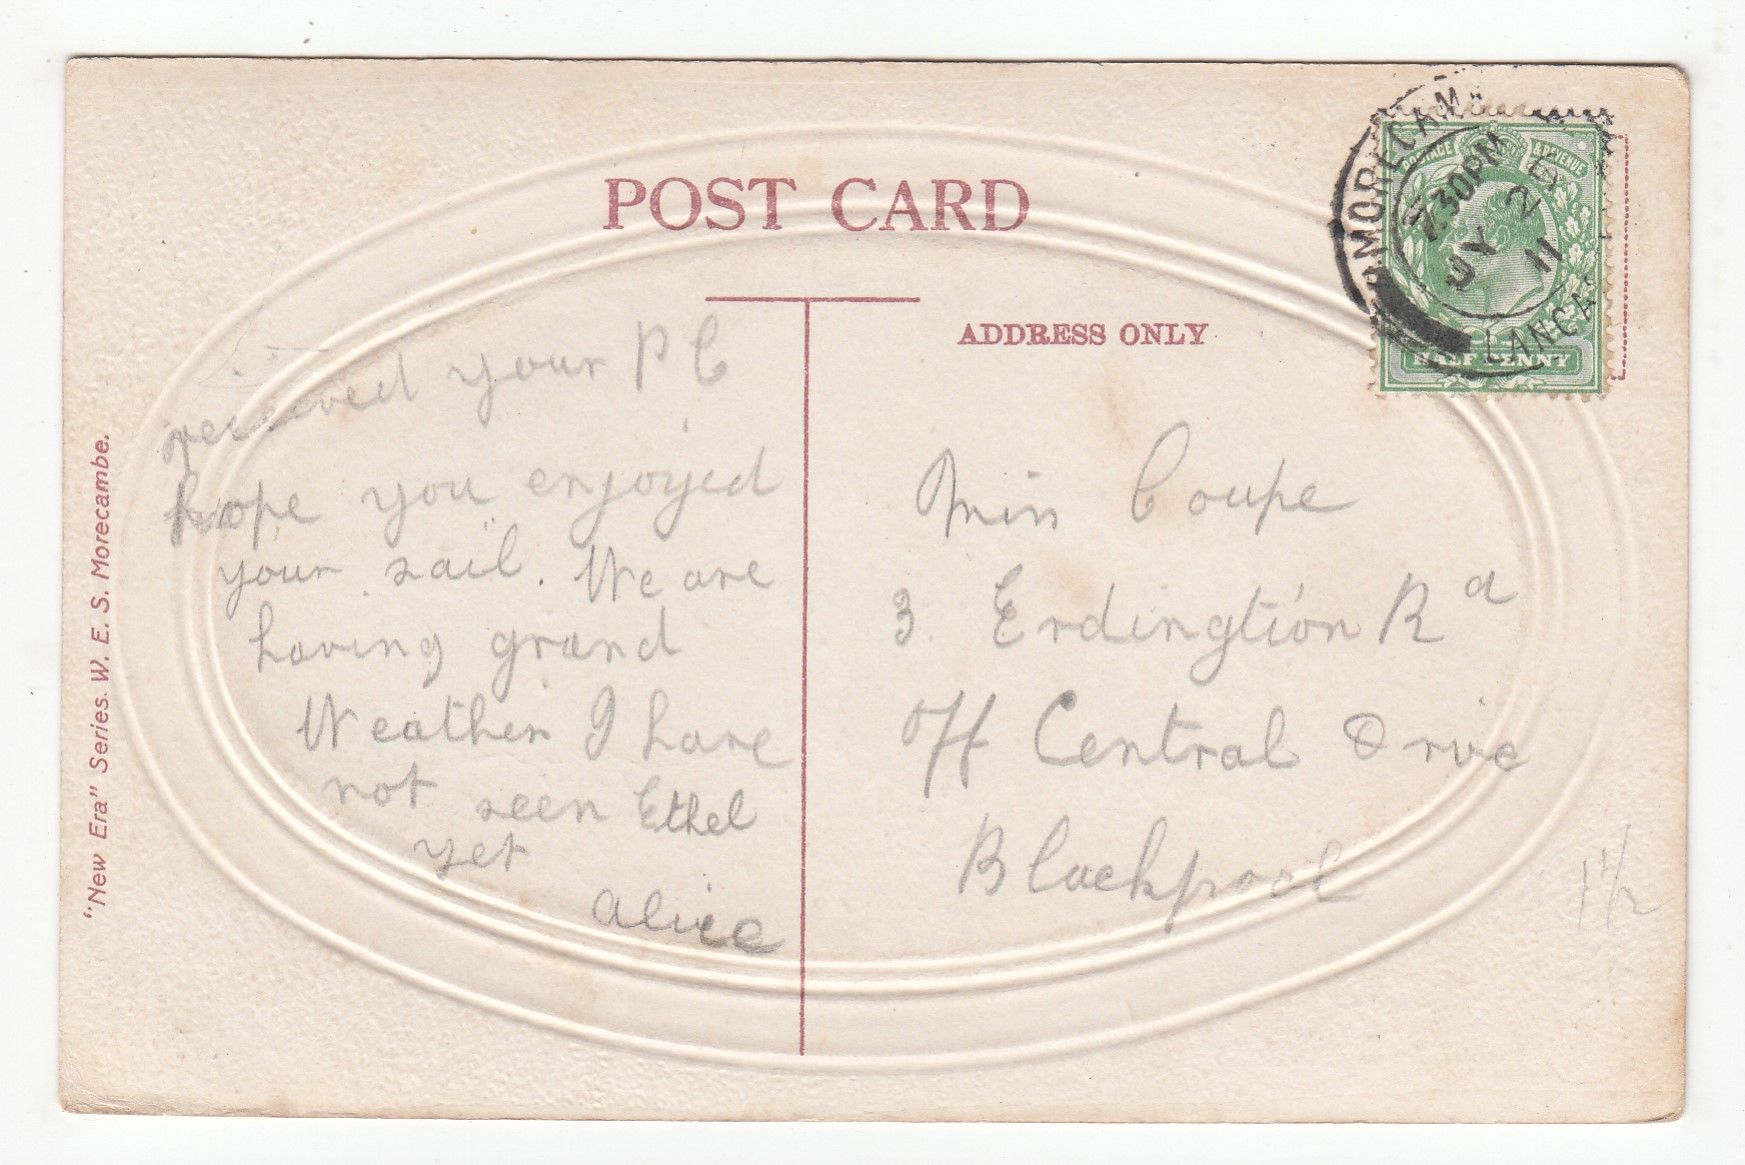 POST CARD
ADDRESS ONLY
received your P C
hope you enjoyed
your sail. We are
having grand
Weather I have
not seen Ethel
yet
Alice
Miss Coupe
3. Erdington Rd
off Central Drive
Blackpool
1 1/2
"New Era" Series. W. E. S. Morecambe.
POSTAGE & REVENUE
HALF PENNY
MORECAM
7.30PM
JY 25
11
LANCA